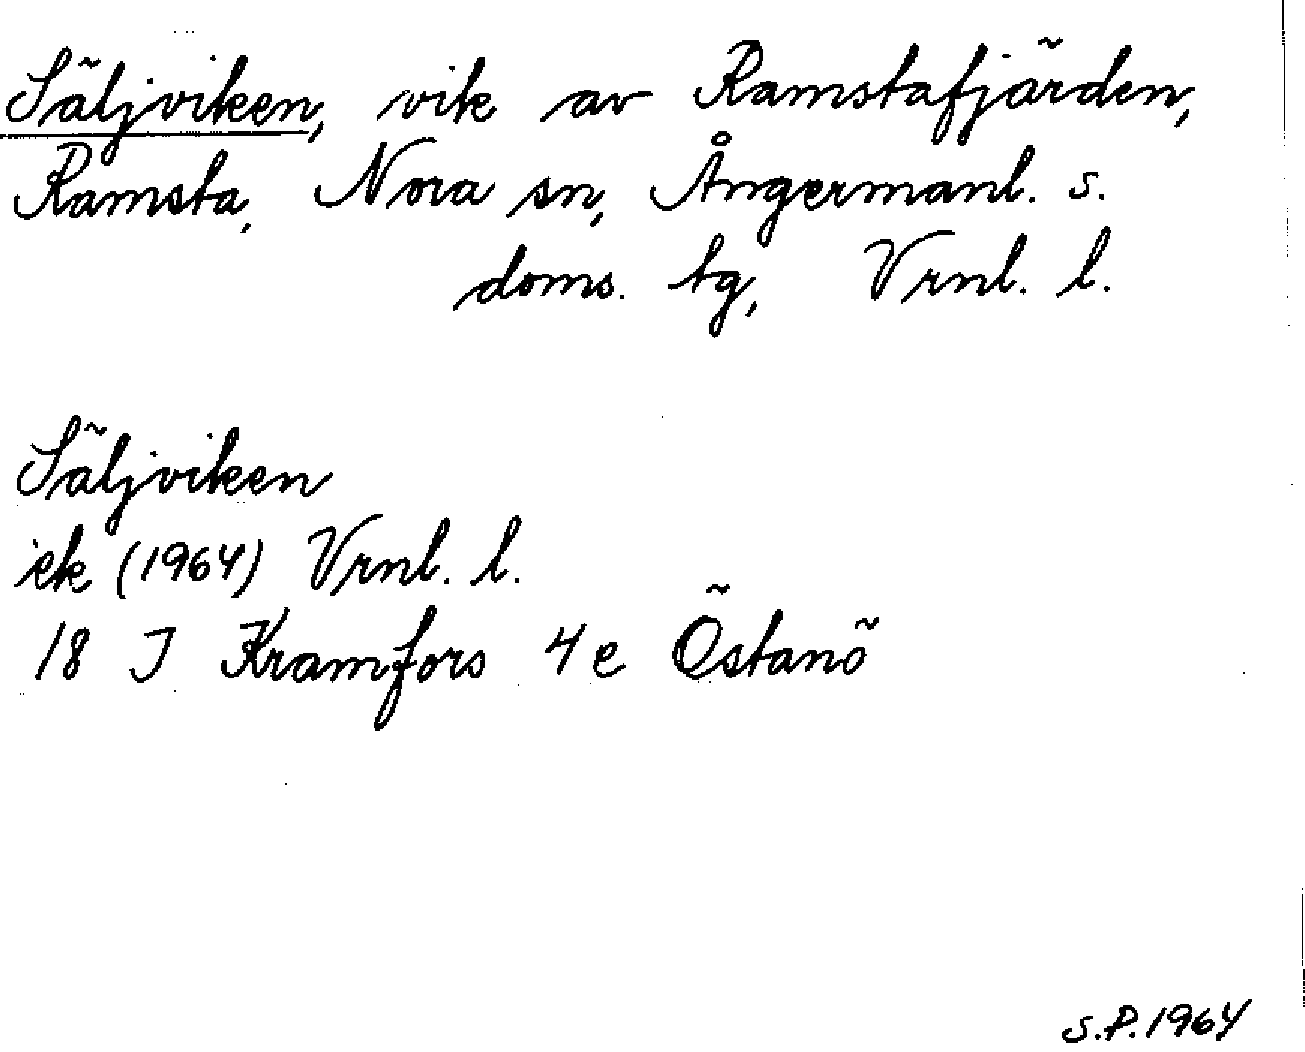 Säljviken, vik av Ramstafjärden,
Ramsta, Nora sn, Ångermanl. s.
doms. tg, Vrnl. l.
Säljviken
ek (1964) Vrnl. l.
18 J Kramfors 4e Östanö
S.P. 1964